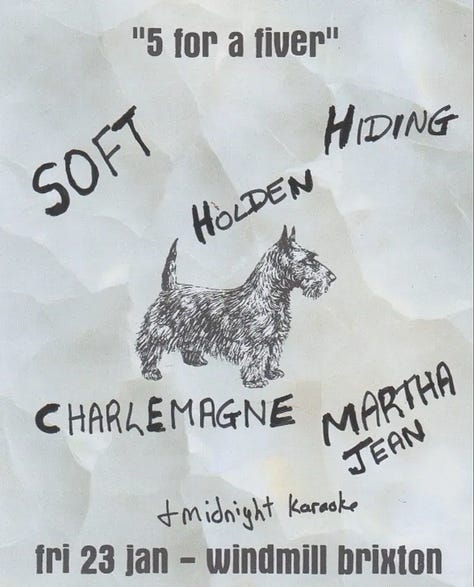 "5 for a fiver"
SOFT
HIDING
HOLDEN
CHARLEMAGNE
MARTHA
JEAN
+midnight karaoke
fri 23 jan – windmill brixton